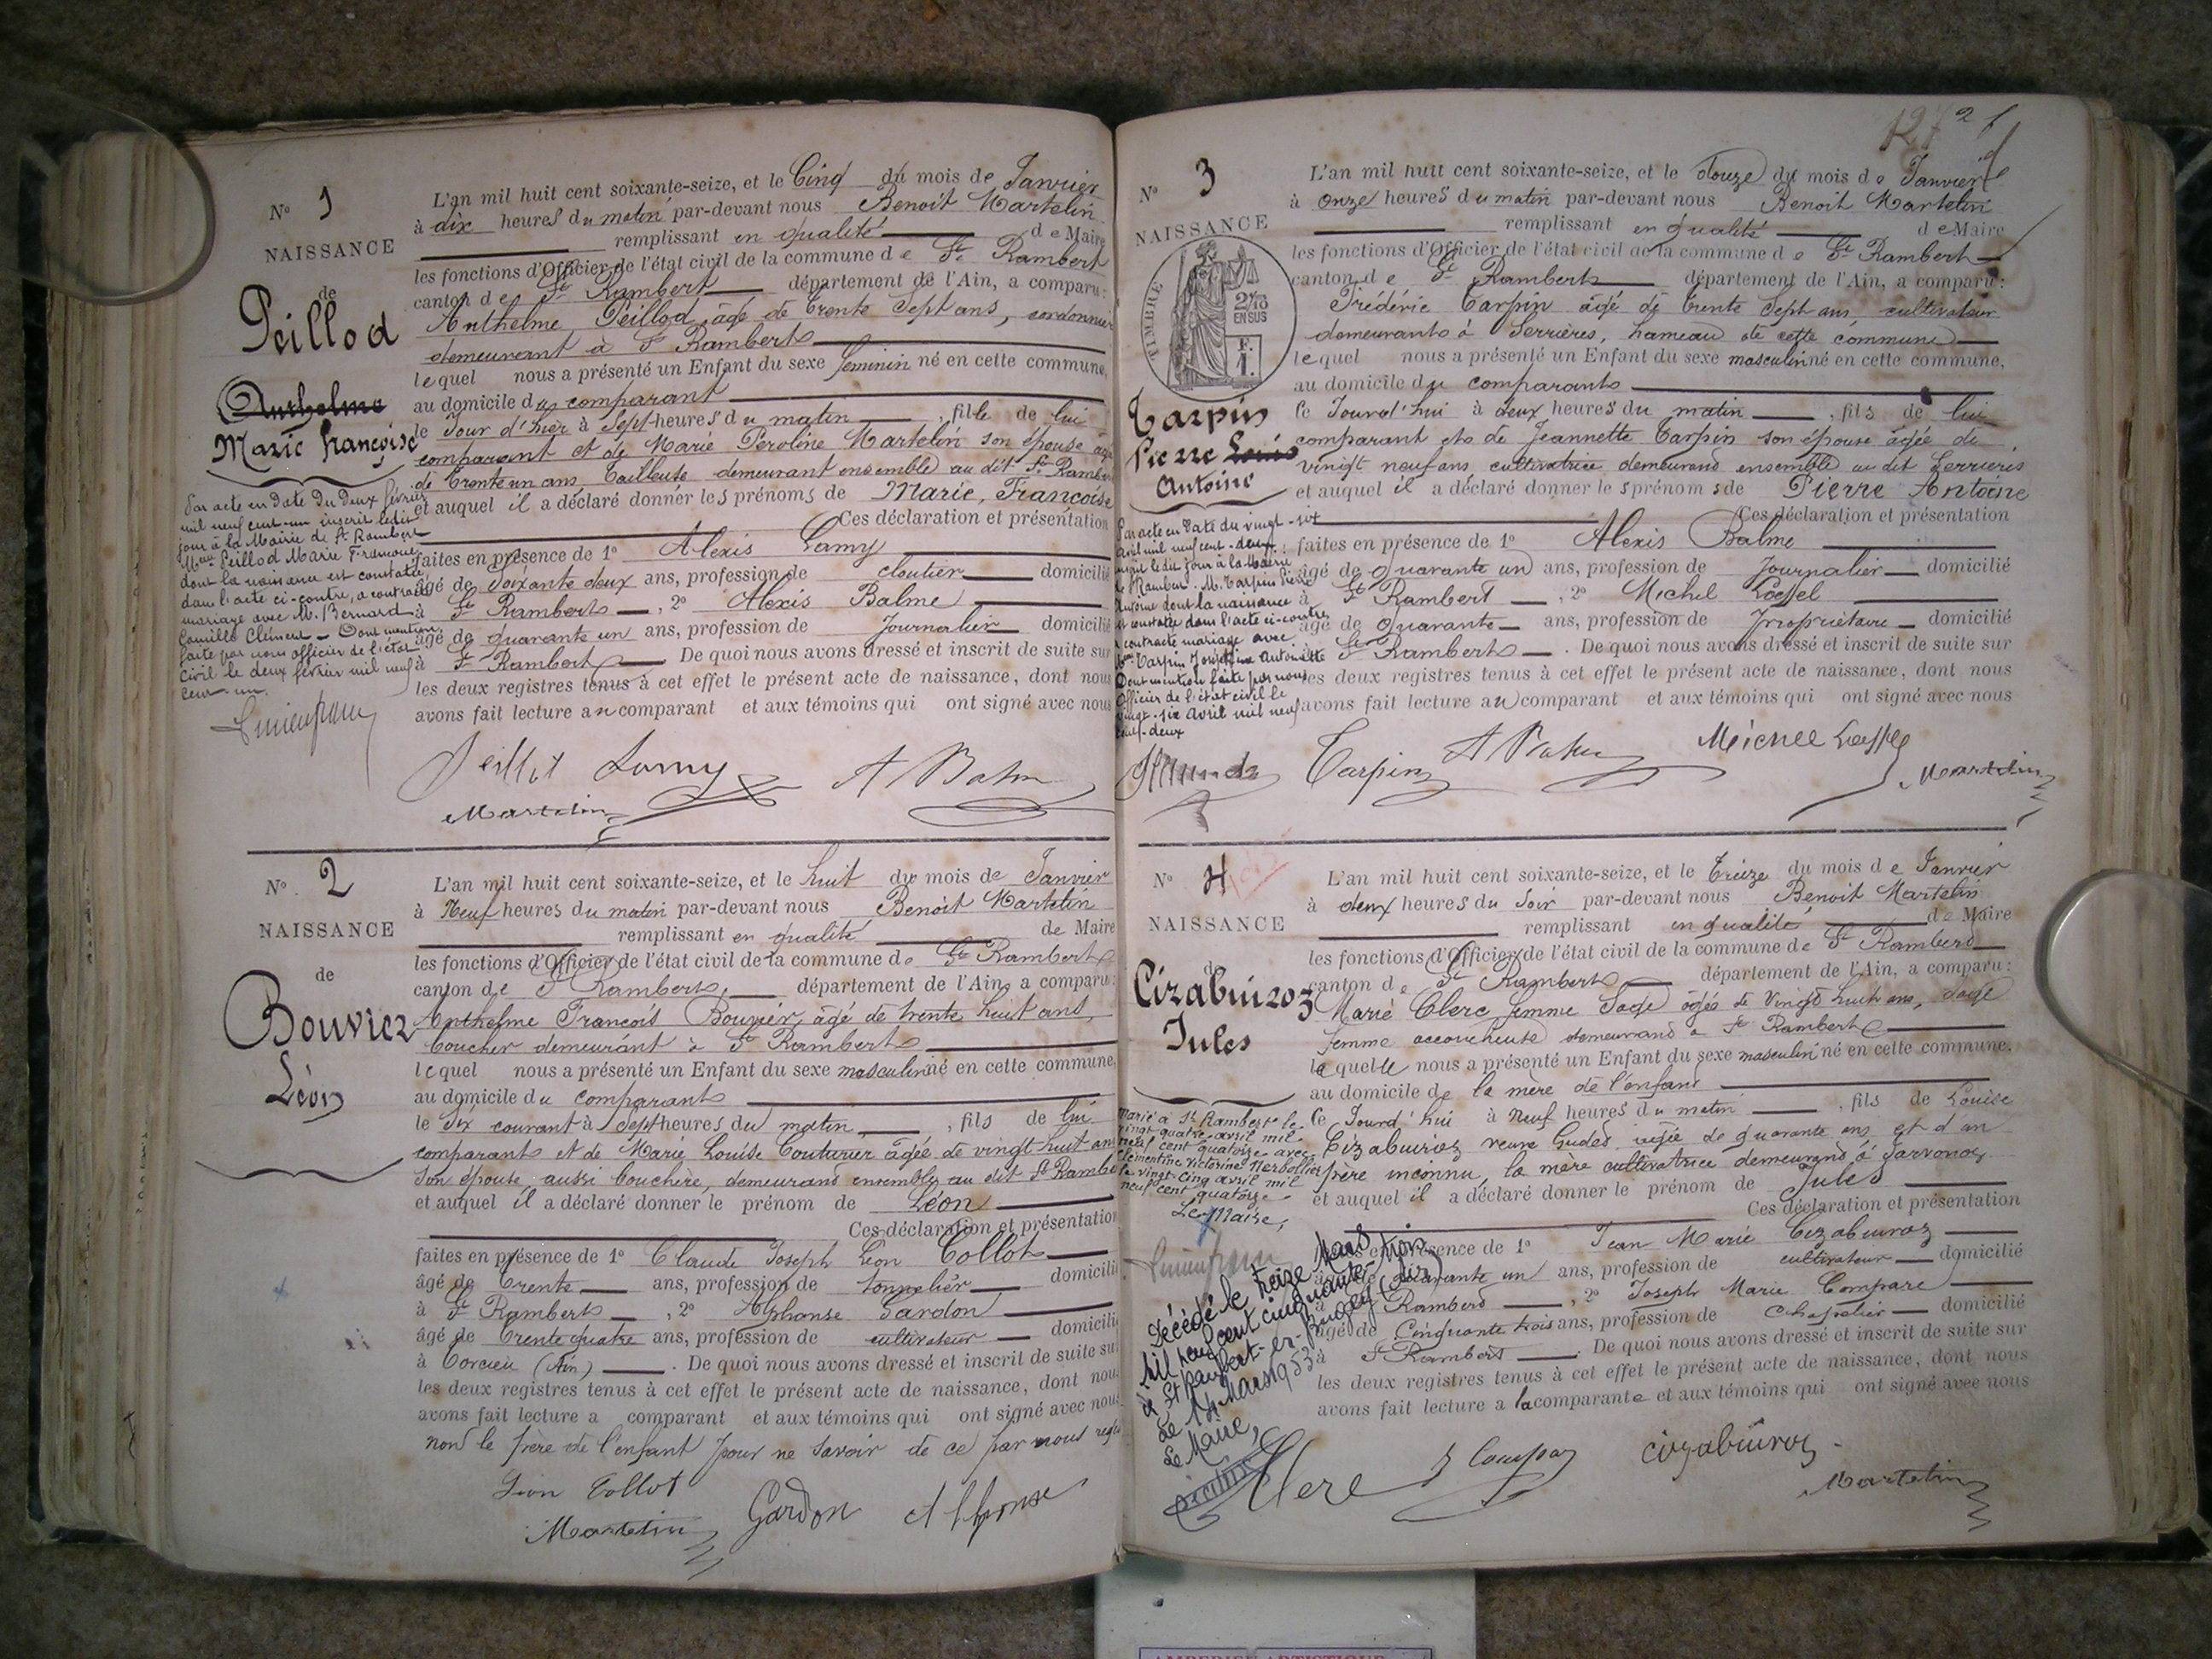 N° 1
NAISSANCE
de
Peillod
Anthelme
Marie Françoise
Par acte en date du deux février
mil neuf cent-un inscrit ledit
jour à la Mairie de St Rambert
Melle Peillod Marie Françoise
dont la naissance est constatée
dans l'acte ci-contre, a contracté
mariage avec M. Bernard
Camille Clément – Dont mention
faite par nous officier de l'état
civil le deux février mil neuf
cent-un.
L'an mil huit cent soixante-seize, et le Cinq du mois de Janvier
à dix heures du matin par-devant nous Benoit Martelin
remplissant en qualité de Maire
les fonctions d'Officier de l'état civil de la commune de St Rambert
canton de St Rambert département de l'Ain, a comparu:
Anthelme Peillod âgé de trente sept ans, cordonnier
demeurant à St Rambert
lequel nous a présenté un Enfant du sexe féminin né en cette commune,
au domicile du comparant
le Jour d'hier à Sept heures du matin, fille de lui
comparant et de Marie Péroline Martelin son épouse âgée
de trente un ans, Tailleuse demeurant ensemble au dit St Rambert
et auquel il a déclaré donner les prénoms de Marie, Françoise
Ces déclaration et présentation
faites en présence de 1° Alexis Lamy
âgé de Soixante deux ans, profession de cloutier domicilié
à St Rambert, 2° Alexis Balme
âgé de quarante un ans, profession de Journalier domicilié
à St Rambert. De quoi nous avons dressé et inscrit de suite sur
les deux registres tenus à cet effet le présent acte de naissance, dont nous
avons fait lecture au comparant et aux témoins qui ont signé avec nous
Peillot Lamy A Balm
Martelin
N° 2
NAISSANCE
de
Bouvier
Léon
L'an mil huit cent soixante-seize, et le huit du mois de Janvier
à Neuf heures du matin par-devant nous Benoit Martelin
remplissant en qualité de Maire
les fonctions d'Officier de l'état civil de la commune de St Rambert
canton de St Rambert, département de l'Ain, a comparu:
Anthelme François Bouvier, âgé de trente huit ans,
boucher demeurant à St Rambert
lequel nous a présenté un Enfant du sexe masculin né en cette commune,
au domicile du comparant
le Six courant à Sept heures du matin, fils de lui
comparant et de Marie Louise Couturier âgée de vingt huit ans
son épouse aussi bouchère, demeurant ensemble au dit St Rambe
et auquel il a déclaré donner le prénom de Léon
Ces déclaration et présentation
faites en présence de 1° Claude Joseph Léon Collot
âgé de trente ans, profession de tonnelier domicilié
à St Rambert, 2° Alphonse Gardon
âgé de trente quatre ans, profession de cultivateur domicilié
à Torcieu (Ain). De quoi nous avons dressé et inscrit de suite sur
les deux registres tenus à cet effet le présent acte de naissance, dont nous
avons fait lecture a comparant et aux témoins qui ont signé avec nous
non le père de l'enfant pour ne savoir de ce par nous requis
Léon Collot
Martelin Gardon Alphonse
127 2
N° 3
NAISSANCE
TIMBRE
2/10
EN SUS
F.
1.
Tarpin
Pierre Louis
Antoine
Par acte en Date du vingt-six
avril mil neuf cent-deux
inscrit le dit jour à la Mairie
de St Rambert. M. Tarpin Pierre
Antoine dont la naissance
est constatée dans l'acte ci-contre
a contracté mariage avec
Melle Tarpin Joséphine Antoinette
Dont mention faite par nous
Officier de l'état civil le
vingt-six Avril mil neuf
cent-deux
L'an mil huit cent soixante-seize, et le douze du mois de Janvier
à onze heures du matin par-devant nous Benoit Martelin
remplissant en qualité de Maire
les fonctions d'Officier de l'état civil de la commune de St Rambert
canton de St Rambert département de l'Ain, a comparu:
Frédéric Tarpin âgé de trente sept ans, cultivateur
demeurant à Serrières, hameau de cette commune
lequel nous a présenté un Enfant du sexe masculin né en cette commune,
au domicile du comparant
le Jourd'hui à deux heures du matin, fils de lui
comparant et de Jeannette Tarpin son épouse âgée de
vingt neuf ans, cultivatrice demeurand ensemble au dit Serrières
et auquel il a déclaré donner les prénoms de Pierre Antoine
Ces déclaration et présentation
faites en présence de 1° Alexis Balme
âgé de quarante un ans, profession de Journalier domicilié
à St Rambert, 2° Michel Loeffel
âgé de Quarante ans, profession de Propriétaire domicilié
à St Rambert. De quoi nous avons dressé et inscrit de suite sur
les deux registres tenus à cet effet le présent acte de naissance, dont nous
avons fait lecture au comparant et aux témoins qui ont signé avec nous
Tarpin A Balm Michel Loeffel
Martelin
N° 4
NAISSANCE
de
Cizabuiroz
Jules
Marié à St Rambert le
vingt quatre avril mil
neuf cent quatorze avec
Clémentine Victorine Nerbollier
le vingt-cinq avril mil
neuf cent quatorze
Le Maire,
Décédé le treize Mars
mil neuf cent cinquante-trois
à St Rambert-en-Bugey (Ain)
Le 14 Mars 1953
Le Maire,
L'an mil huit cent soixante-seize, et le treize du mois de Janvier
à deux heures du Soir par-devant nous Benoit Martelin
remplissant en qualité de Maire
les fonctions d'Officier de l'état civil de la commune de St Rambert
canton de St Rambert département de l'Ain, a comparu:
Marie Clerc femme Sage âgée de Vingt huit ans, Sage
femme accoucheuse demeurand à St Rambert
laquelle nous a présenté un Enfant du sexe masculin né en cette commune.
au domicile de la mère de l'enfant
le Jourd'hui à neuf heures du matin, fils de Louise
Cizabuiroz veuve Gudet âgée de quarante ans et d'un
père inconnu, la mère cultivatrice demeurand à Javornoz
et auquel il a déclaré donner le prénom de Jules
Ces déclaration et présentation
faites en présence de 1° Jean Marie Cizabuiroz
âgé de quarante un ans, profession de cultivateur domicilié
à St Rambert, 2° Joseph Marie Compare
âgé de Cinquante trois ans, profession de Chapelier domicilié
à St Rambert. De quoi nous avons dressé et inscrit de suite sur
les deux registres tenus à cet effet le présent acte de naissance, dont nous
avons fait lecture a la comparante et aux témoins qui ont signé avec nous
Clerc Cizabuiroz
Martelin